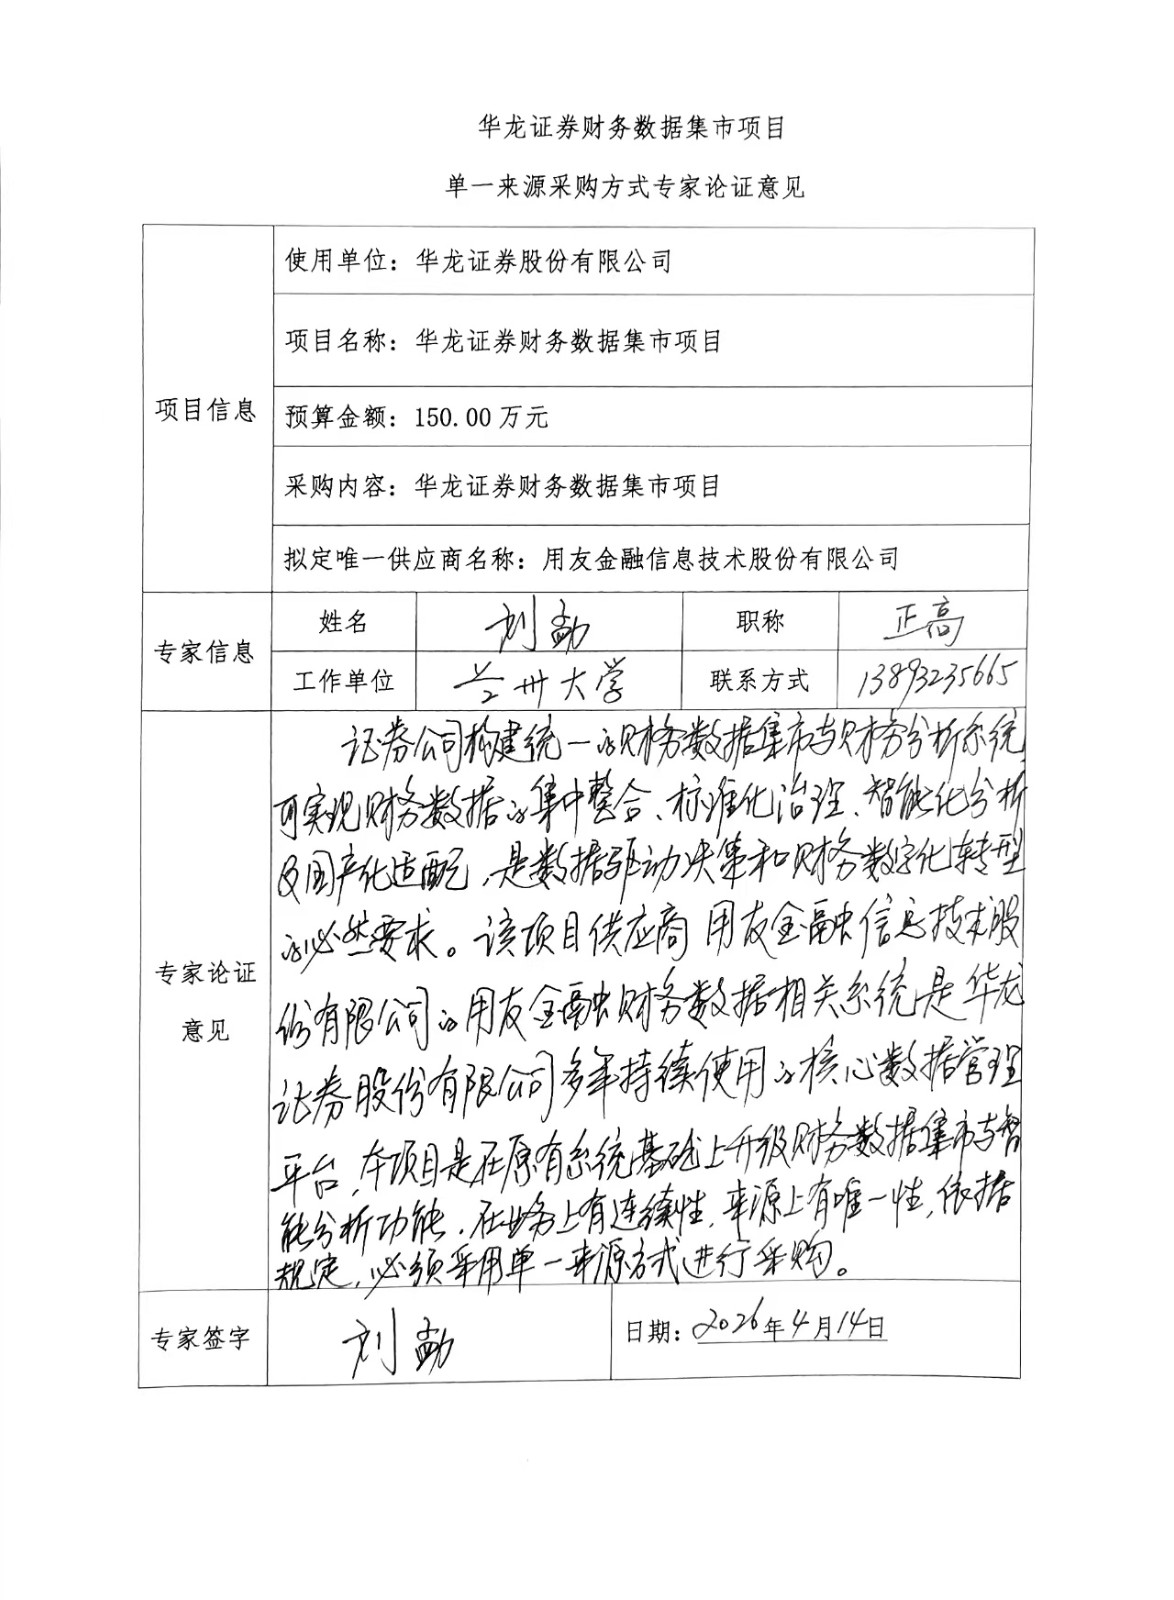 华龙证券财务数据集市项目
单一来源采购方式专家论证意见
项目信息
使用单位：华龙证券股份有限公司
项目名称：华龙证券财务数据集市项目
预算金额：150.00万元
采购内容：华龙证券财务数据集市项目
拟定唯一供应商名称：用友金融信息技术股份有限公司
专家信息
姓名 刘勐 职称 正高
工作单位 兰州大学 联系方式 13893235665
专家论证
意见
证券公司构建统一的财务数据集市与财务分析系统
可实现财务数据的集中整合、标准化治理、智能化分析
及国产化适配，是数据驱动决策和财务数字化转型
的必然要求。该项目供应商用友金融信息技术股
份有限公司的用友金融财务数据相关系统是华龙
证券股份有限公司多年持续使用的核心数据管理
平台，本项目是在原有系统基础上升级财务数据集市与智
能分析功能，在业务上有连续性，来源上有唯一性，依据
规定，必须采用单一来源方式进行采购。
专家签字 刘勐 日期：2026年4月14日